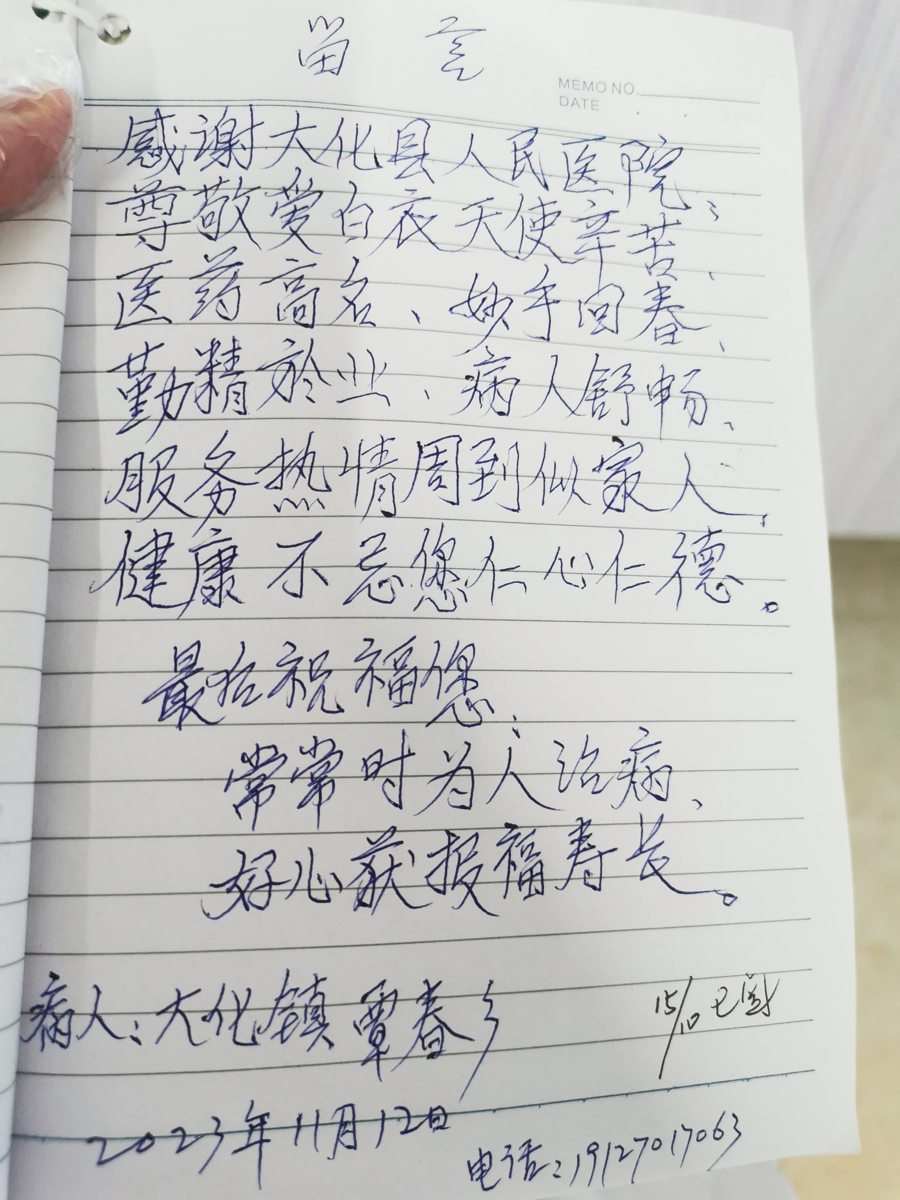 留言
MEMO NO.
DATE
感谢大化县人民医院，
尊敬爱白衣天使辛苦、
医药高名、妙手回春、
勤精於业、病人舒畅、
服务热情周到似家人，
健康不忘您仁心仁德。
最后祝福您：
常常时为人治病、
好心获报福寿长。
病人：大化镇覃春
15/10 已
2023年11月12日
电话：19127017063